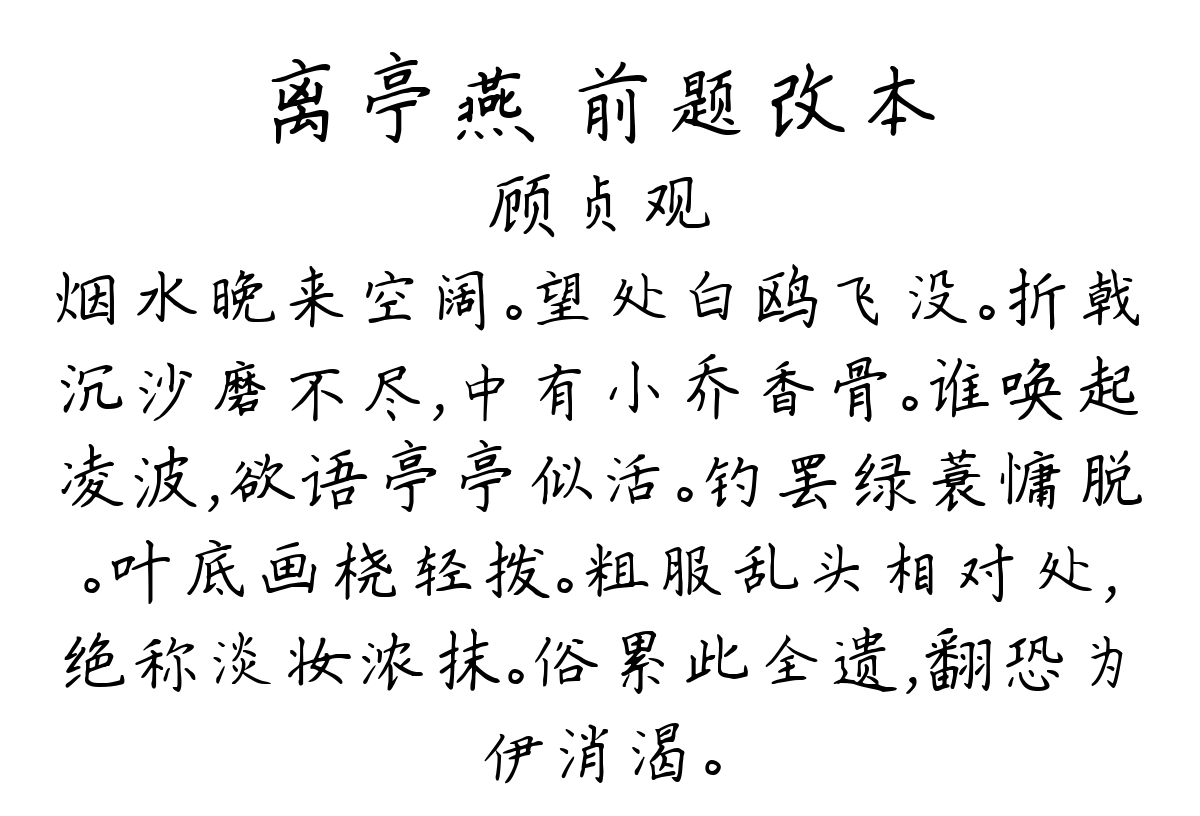 离亭燕 前题改本
顾贞观
烟水晚来空阔。望处白鸥飞没。折戟
沉沙磨不尽,中有小乔香骨。谁唤起
凌波,欲语亭亭似活。钓罢绿蓑慵脱
。叶底画桡轻拨。粗服乱头相对处,
绝称淡妆浓抹。俗累此全遗,翻恐为
伊消渴。